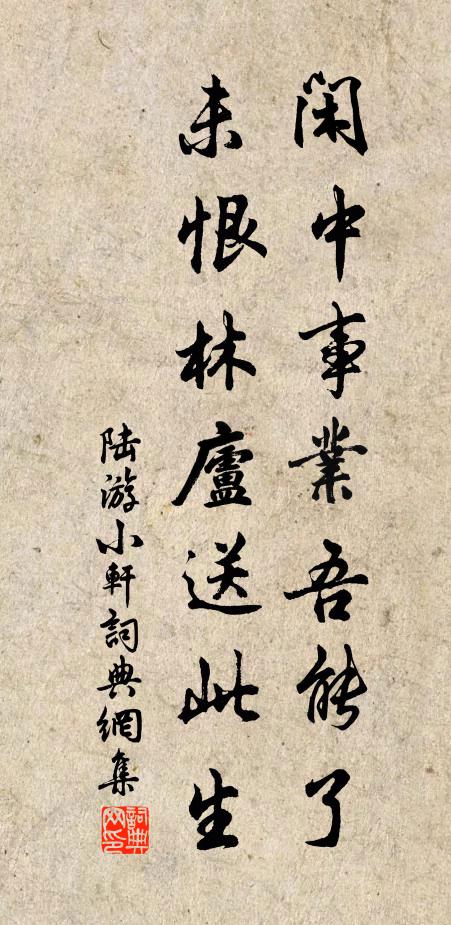 閑中事業吾能了
未恨林廬送此生
陸游小軒詞典網集
詞典網印